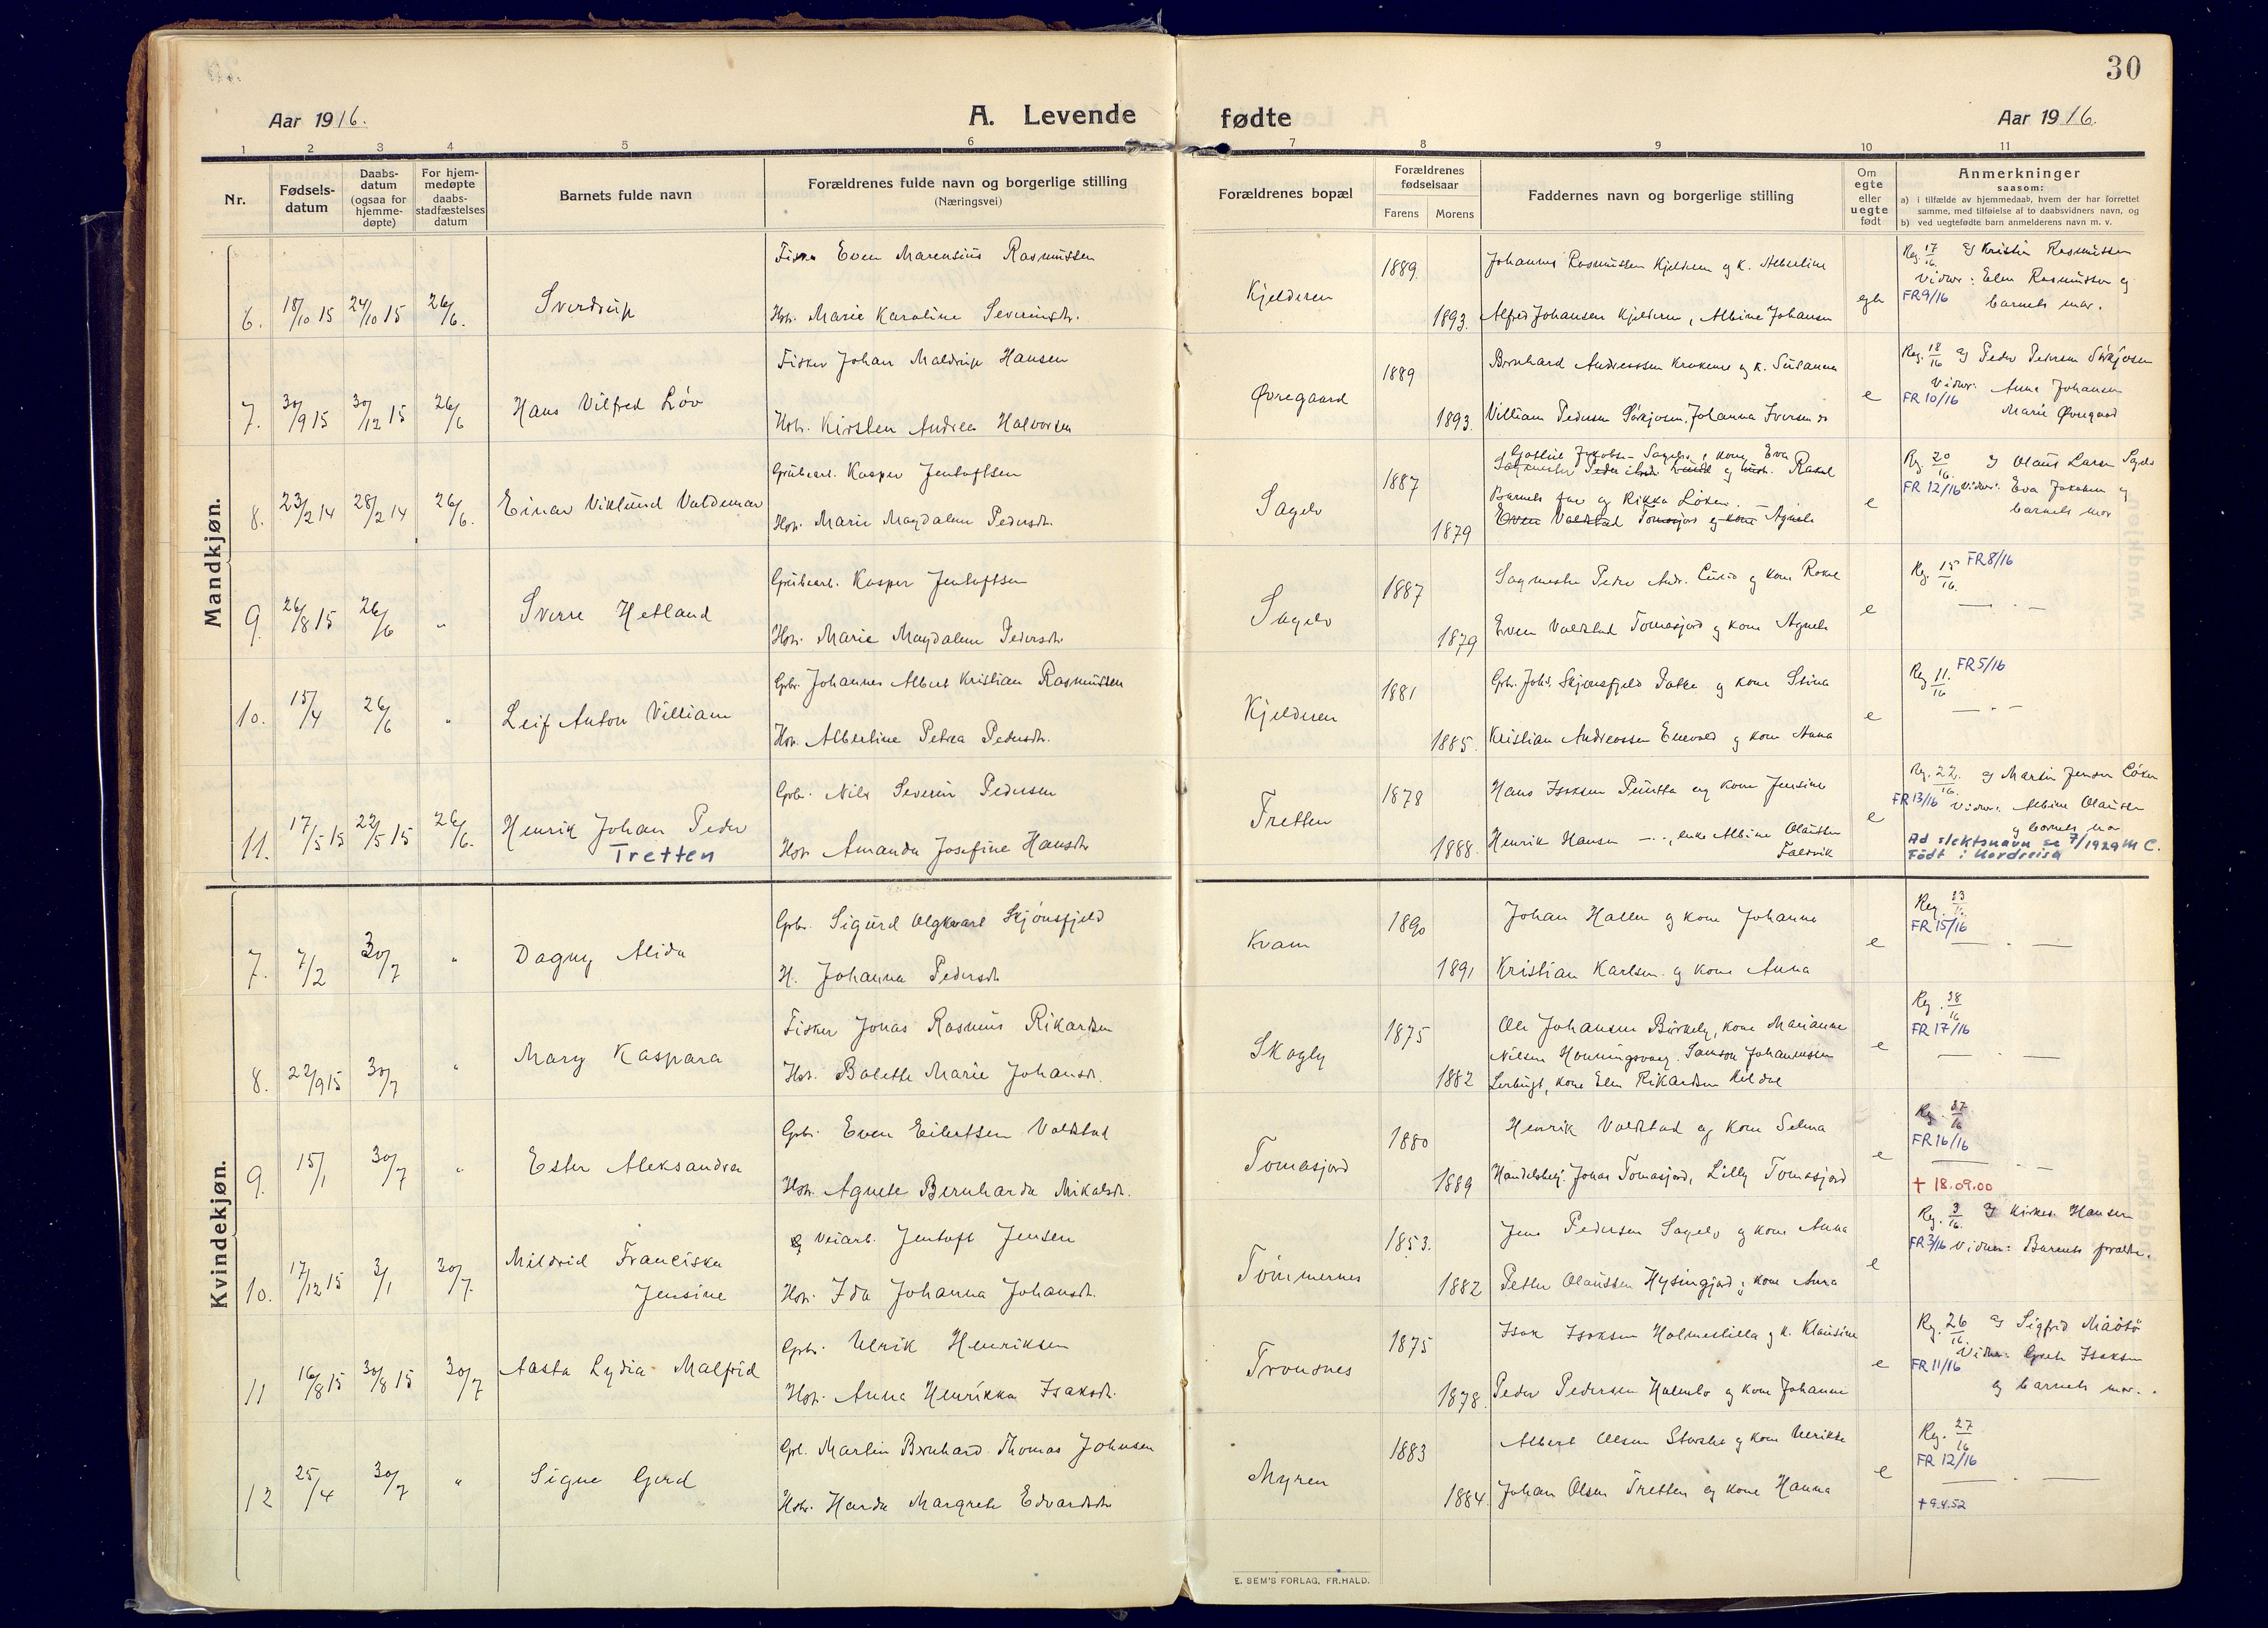 30
Aar 1916.
A. Levende fødte
Aar 1916.
1 2 3 4 5 6 7 8 9 10 11
Nr.
Fødsels-
datum
Daabs-
datum
(ogsaa for
hjemme-
døpte)
For hjem-
medøpte
daabs-
stadfæstelses
datum
Barnets fulde navn
Forældrenes fulde navn og borgerlige stilling
(Næringsvei)
Forældrenes bopæl
Forældrenes
fødselsaar
Farens Morens
Faddernes navn og borgerlige stilling
Om
egte
eller
uegte
født
Anmerkninger
saasom:
a) i tilfælde av hjemmedaab, hvem der har forrettet
samme, med tilføielse af to daabsvidners navn, og
b) ved uegtefødte barn anmelderens navn m. v.
Mandkjøn.
6. 18/10 15 24/10 15 26/6. Sverdrup
Fisker Even Marensius Rasmussen
Hstr. Marie Karoline Severinsdtr.
Kjelderen 1889. 1893.
Johannes Rasmussen Kjelderen og k. Albertine
Alfred Johansen Kjelderen, Albine Johansen
Reg. 17/16. af Kristin Rasmussen
Vidner: Elen Rasmussen og
FR 9/16 barnets mor.
7. 30/9 15 30/12 15 26/6 Hans Vilfred Löv
Fisker Johan Maldrup Hansen
Hstr. Kirsten Andrea Halvorsen
Øvregaard 1889 1893.
Bernhard Andreassen Krokenes og k. Susanna
Villiam Pedersen Sørkjosen, Johanna Iversen
e
Reg. 18/16 af Peder Pedersen Sørkjosen
Vidner: Anna Johansen
FR 10/16 Marie Øvregaard
8. 23/2 14 28/2 14 26/6. Einar Viklund Valdemar
Grubearb. Kasper Jentoftsen
Hstr. Marie Magdalena Pedersdtr.
Sagelv 1887 1879
Barnets far og Rikka Løken.
Even Valstad Tomasjord og kone Agnete
e
Reg. 20/16. af Olaus Larsen Sagelv
FR 12/16 Vidner: Eva Jakobsen og
barnets mor
9. 26/8 15 26/6 " Sverre Hetland
Grubearb. Kasper Jentoftsen
Hstr. Marie Magdalena Pedersdtr.
Sagelv 1887 1879
Sagmester Peder And. Lund og kone Rakel
Even Valstad Tomasjord og kone Agnete
e
Reg. 15/16. FR 8/16
10. 15/4 26/6 " Leif Anton Villiam
Gbr. Johannes Albert Kristian Rasmussen
Hstr. Albertine Petrea Pedersdtr.
Kjelderen 1881 1885.
Gbr. Johs. Skjønsfjeld Takke og kone Stina
Kristian Andreassen Enevold og kone Anna
e
Reg. 11./16 FR 5/16
11. 17/5 15 22/5 15 26/6. Henrik Johan Peder
Tretten
Gbr. Nils Severin Pedersen
Hstr. Amanda Josefine Hansdtr.
Tretten 1878 1888.
Hans Isaksen Punta og kone Jensine
Henrik Hansen — " —, enke Albine Olaussen
Falsvik
e
Reg. 22./16. af Martin Jensen Löken
FR 13/16 Vidner: Albine Olaussen
og barnets mor
Ad slektsnavn se 7/1929 M C.
Født i Nordreisa
Kvindekjøn.
7. 7/2 30/7 " Dagny Alida
Gbr. Sigurd Olgkvart Skjønsfjeld
H. Johanna Pedersdtr.
Kvam 1890 1891
Johan Hallen og kone Johanna
Kristian Karlsen og kone Anna
e
Reg. 33/16.
FR 15/16
8. 22/9 15 30/7 " Mary Kaspara
Fisker Jonas Rasmus Rikardsen
Hstr. Babette Marie Johansdtr.
Skogly 1875 1882
Ole Johansen Birkely, kone Marianne
Nilsen Honningsvaag. Samson Johannessen
Lerbugt, kone Elen Rikardsen Kildal
e
Reg. 38/16
FR 17/16
9. 15/1 30/7 " Ester Aleksandra
Gbr. Even Eilertsen Valstad
Hstr. Agnete Bernharda Mikalsdtr.
Tomasjord 1880 1889
Henrik Valstad og kone Selma
Handelsbetj. Johan Tomasjord, Lilly Tomasjord
e
Reg. 37/16
FR 16/16
† 18.09.00
10. 17/12 15 3/1 30/7. Mildrid Franciska
Jensine
Veiarb. Jentoft Jensen
Hstr. Ida Johanna Johansdtr.
Tömmernes 1853. 1882
Jens Pedersen Sagelv og kone Anna
Petter Olaussen Hysingjord og kone Anna
e
Reg. 3/16. af Kirkes. Hansen
FR 3/16 Vidner: Barnets forældre.
11 16/8 15 30/8 15 30/7 Aasta Lydia Malfrid
Gbr. Ulrik Henriksen
Hstr. Anna Henrikka Isaksdtr.
Tronsnes 1875 1878.
Isak Isaksen Holmestilla og k. Klausine
Peder Pedersen Holmbo og kone Johanne
e
Reg. 26/16. af Sigfrid Måsø
Vidner: Grete Isaksen
FR 11/16 og barnets mor.
12 25/4 30/7 " Signe Gerd
Gbr. Martin Bernhard Thomas Johnsen
Hstr. Harda Margrete Edvardsdtr.
Myren 1883 1884.
Albert Olsen Storslet og kone Ulrikke
Johan Olsen Tretten og kone Hanna
e
Reg. 27/16
FR 12/16
† 9.4.52
E. SEM'S FORLAG, FR.HALD.